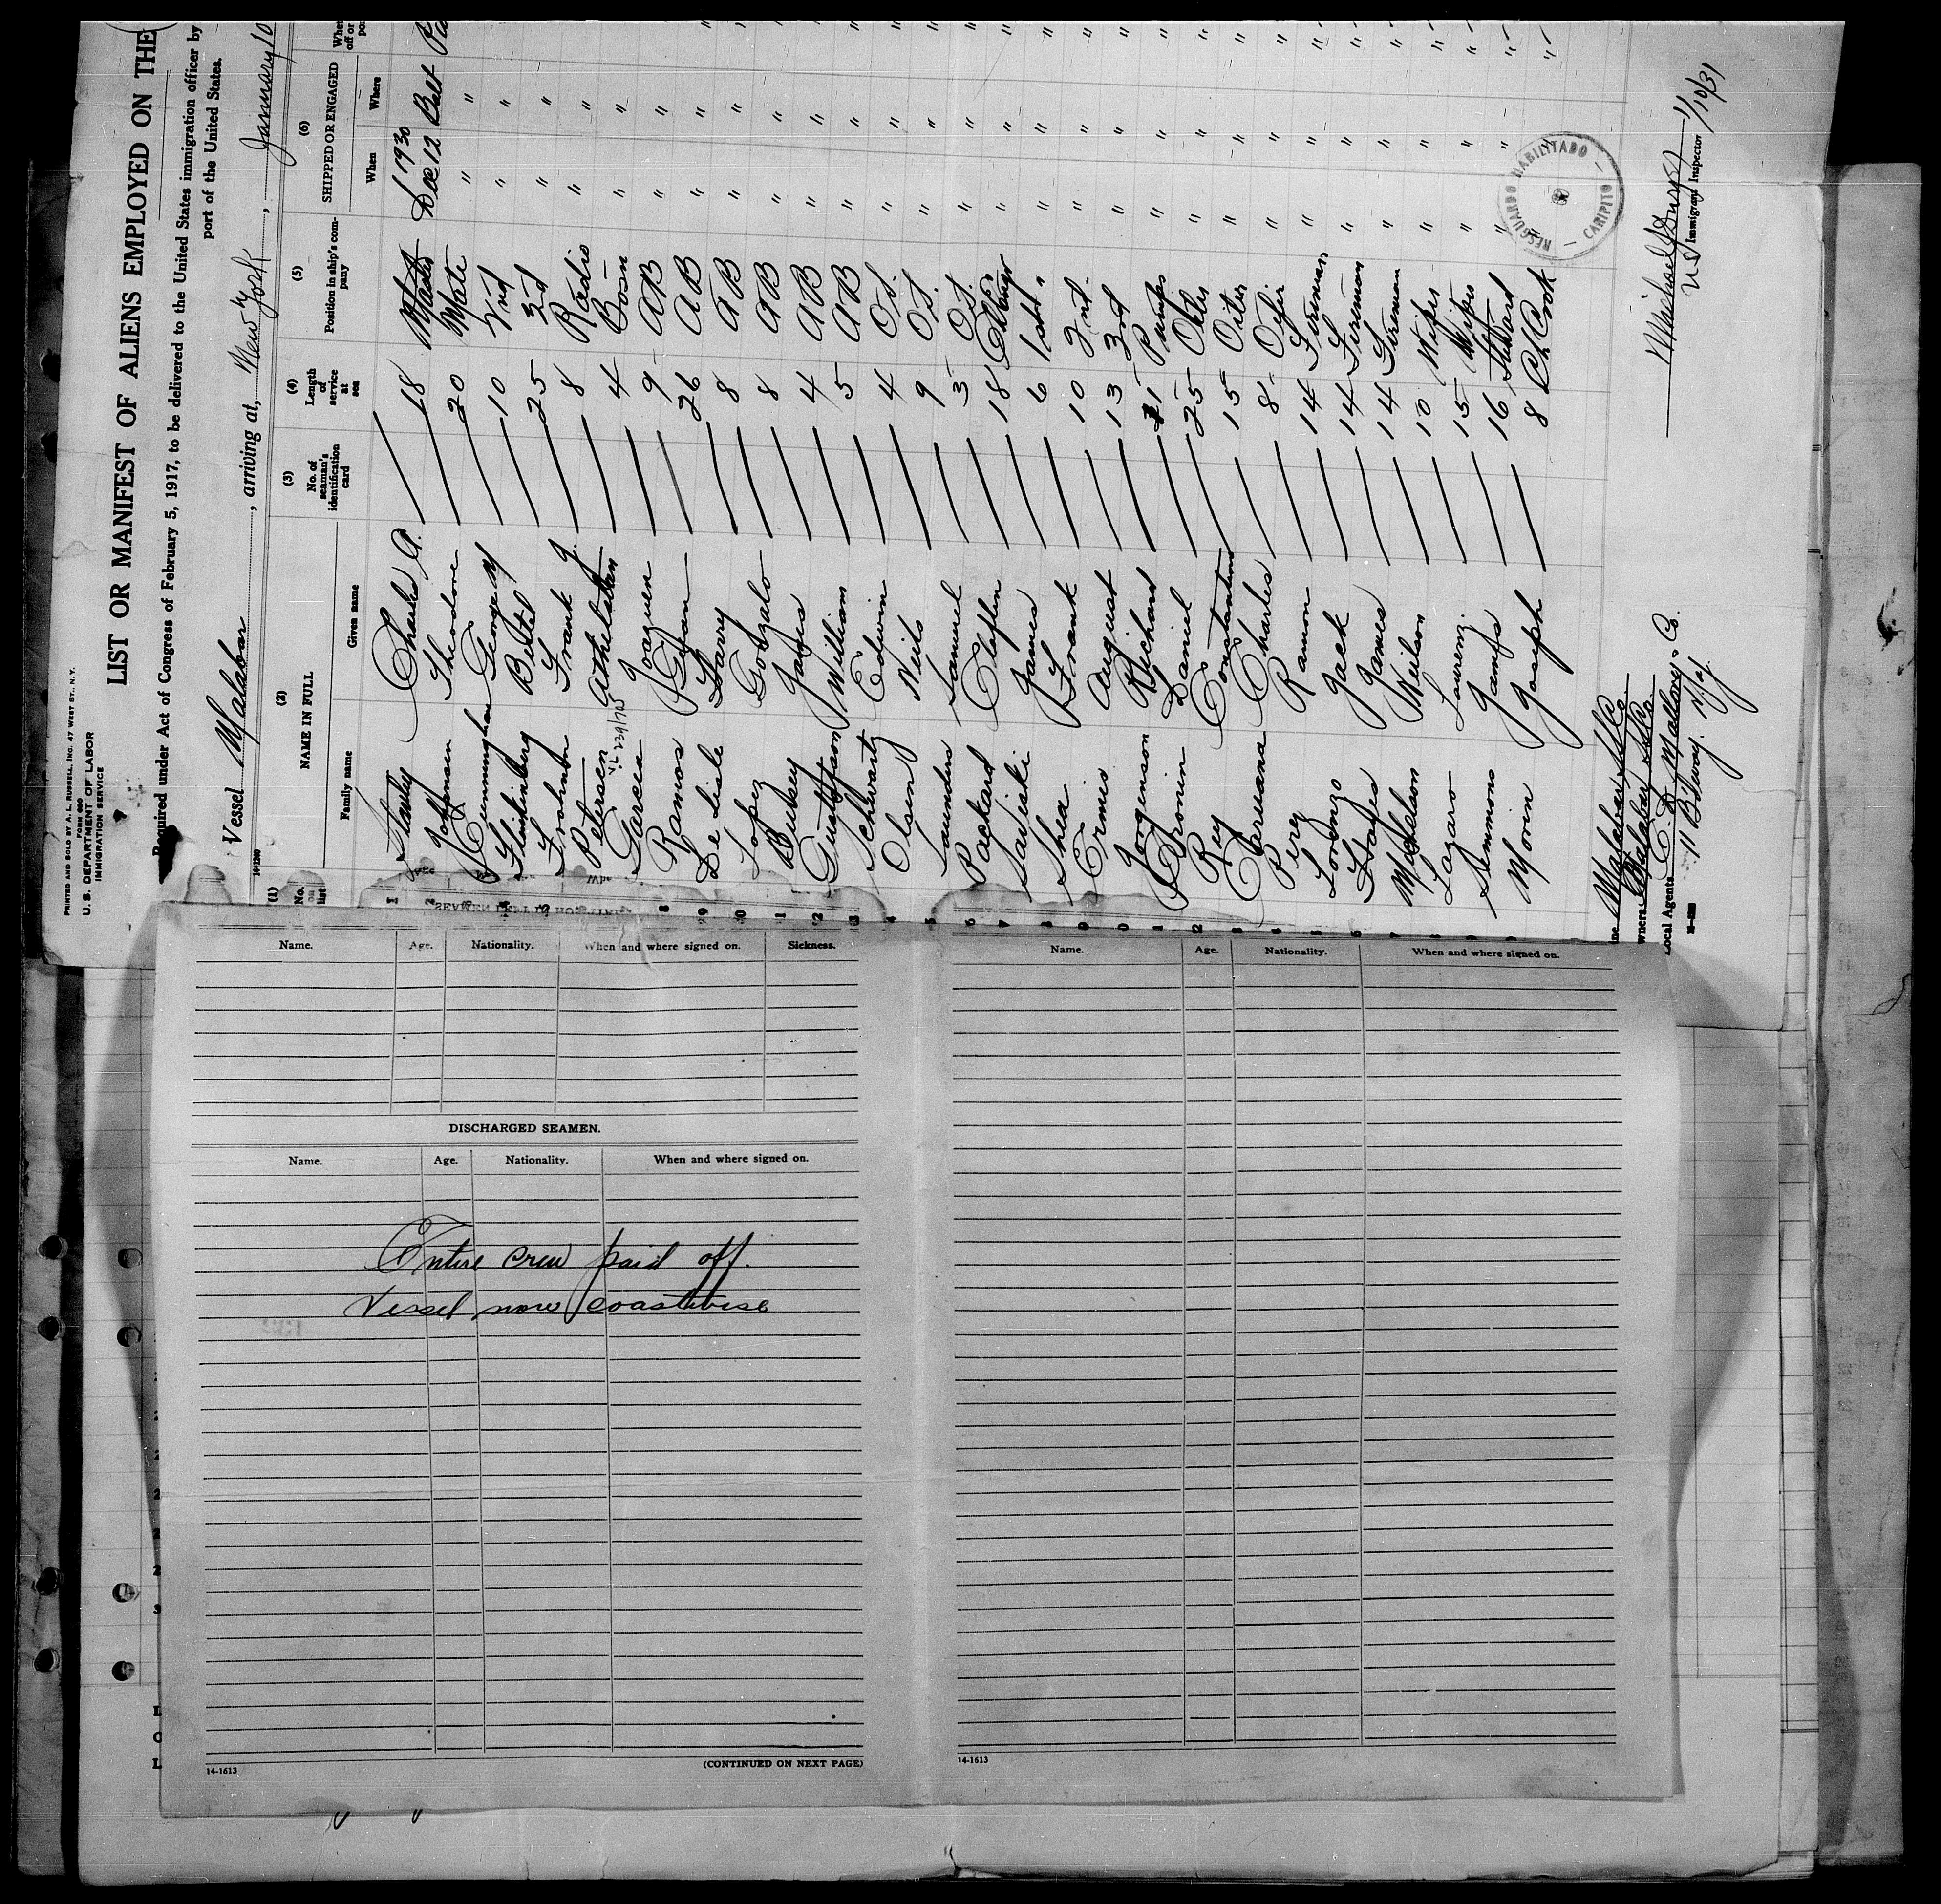 PRINTED AND SOLD BY A. L. RUSSELL, INC. 47 WEST ST., N.Y.
FORM 680
U. S. DEPARTMENT OF LABOR
IMMIGRATION SERVICE
LIST OR MANIFEST OF ALIENS EMPLOYED ON THE
Required under Act of Congress of February 5, 1917, to be delivered to the United States immigration officer by
port of the United States.
Vessel Malabar, arriving at, New York, January 10
14-1240
(1) (2) (3) (4) (5) (6)
No. on list NAME IN FULL No. of seaman's identification card Length of service at sea Position in ship's company SHIPPED OR ENGAGED
Family name Given name When Where
1930
1 Stanley Charles A. 18 Master Dec 12 Balt
2 Johanson Theodore 20 Mate " "
Cunningham George W 10 2nd " "
Flinkinburg Bestel 25 3rd " "
Frohnbn Frank J. 8 Radio " "
Petersen Athelstan 4 Bosn " "
Garcia Joaquin 9 AB " "
8 Ramos Juan 26 AB " "
9 De Lisle Harry 8 AB " "
10 Lopez Gonzalo 8 AB " "
11 Bussey James 4 AB " "
12 Gustafson William 5 AB " "
13 Schwartz Edwin 4 O.S. " "
Olsen Neils 9 O.S. " "
5 Saunders Samuel 3 O.S. " "
6 Packard Cleflen 18 Ch Engr " "
7 Sawiski James 6 1st " " "
8 Shea Frank 10 2nd " "
9 Ormis August 13 3rd " "
0 Jorgenson Richard 21 Pumps " "
1 Cronin Daniel 25 Oiler " "
2 Rey Constantino 15 Oiler " "
3 Caruana Charles 8 Oiler " "
Perez Ramon 14 Fireman " "
5 Lorenzo Jack 14 Fireman " "
6 Hayes James 14 Fireman " "
7 Nelson 10 Wiper " "
Lazaro Laurenz 15 Wiper " "
Simmons James 16 Steward " "
Morin Joseph 8 Ch Cook
RESGUARDO HABILITADO - CARIPITO -
1/10/31
US Immigrant Inspector
Malabar SS Co.
Owners Malabar SS Co.
Local Agents C. D. Mallory & Co.
11 Bdway. N.Y.
Name. Age. Nationality. When and where signed on. Sickness.
DISCHARGED SEAMEN.
Name. Age. Nationality. When and where signed on.
Entire crew paid off.
Vessel now coastwise
14-1613 (CONTINUED ON NEXT PAGE)
Name. Age. Nationality. When and where signed on.
14-1613